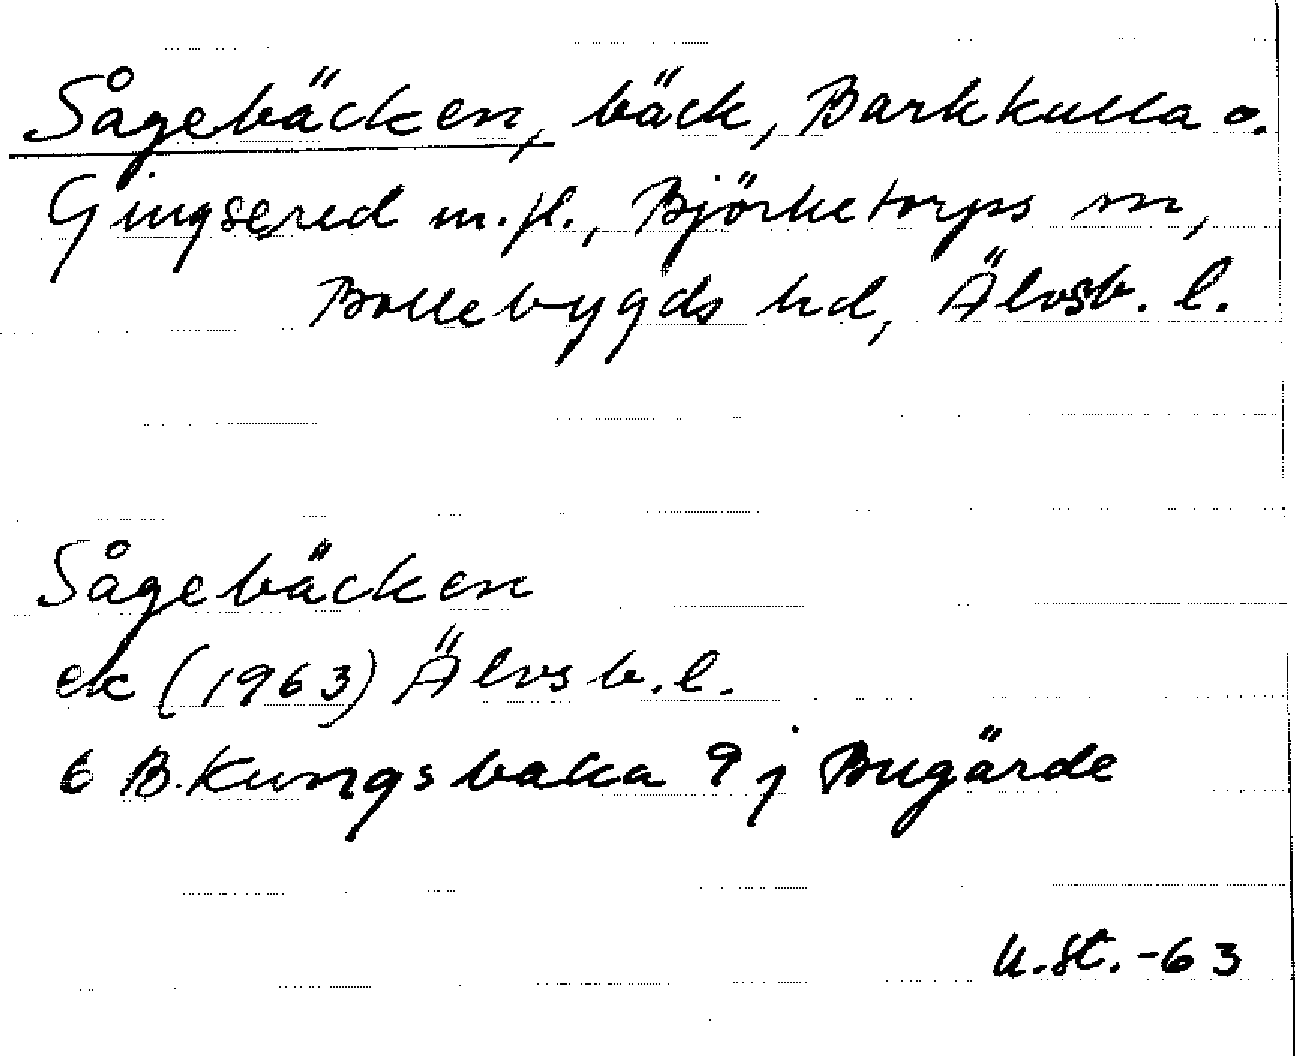 Sågebäcken, bäck, Barkkulla o.
Gingsered m.fl., Björketorps sn,
Bollebygds hd, Älvsb. l.
Sågebäcken
ek (1963) Älvsb. l.
6 B. Kungsbacka 9 j Bugärde
U.St. -63